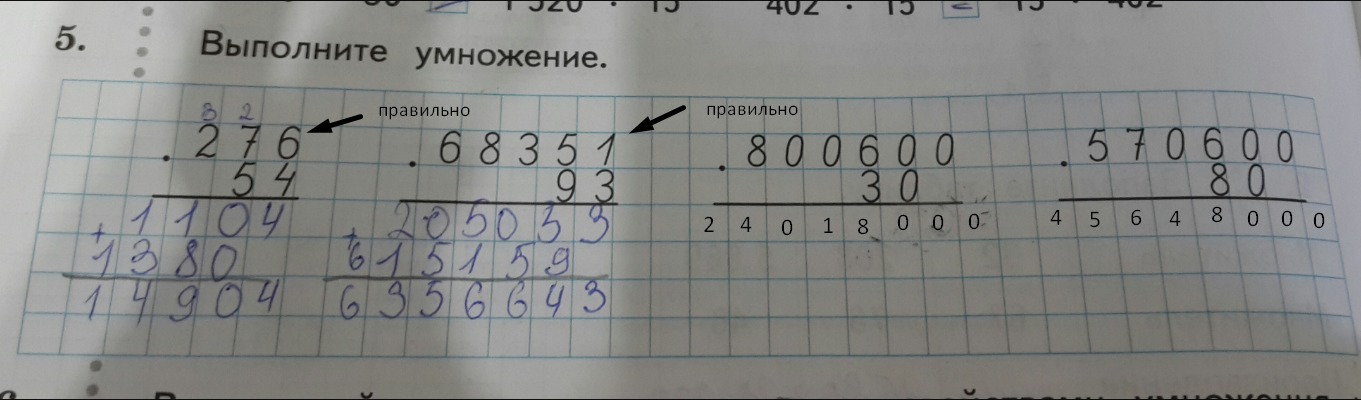 1 320 · 15 402 · 15 = 15 · 402
5. Выполните умножение.
3 2
правильно правильно
· 276 · 68351 · 800600 · 570600
54 93 30 80
+ 1104 + 205033 24018000 45648000
1380 615159
14904 6356643